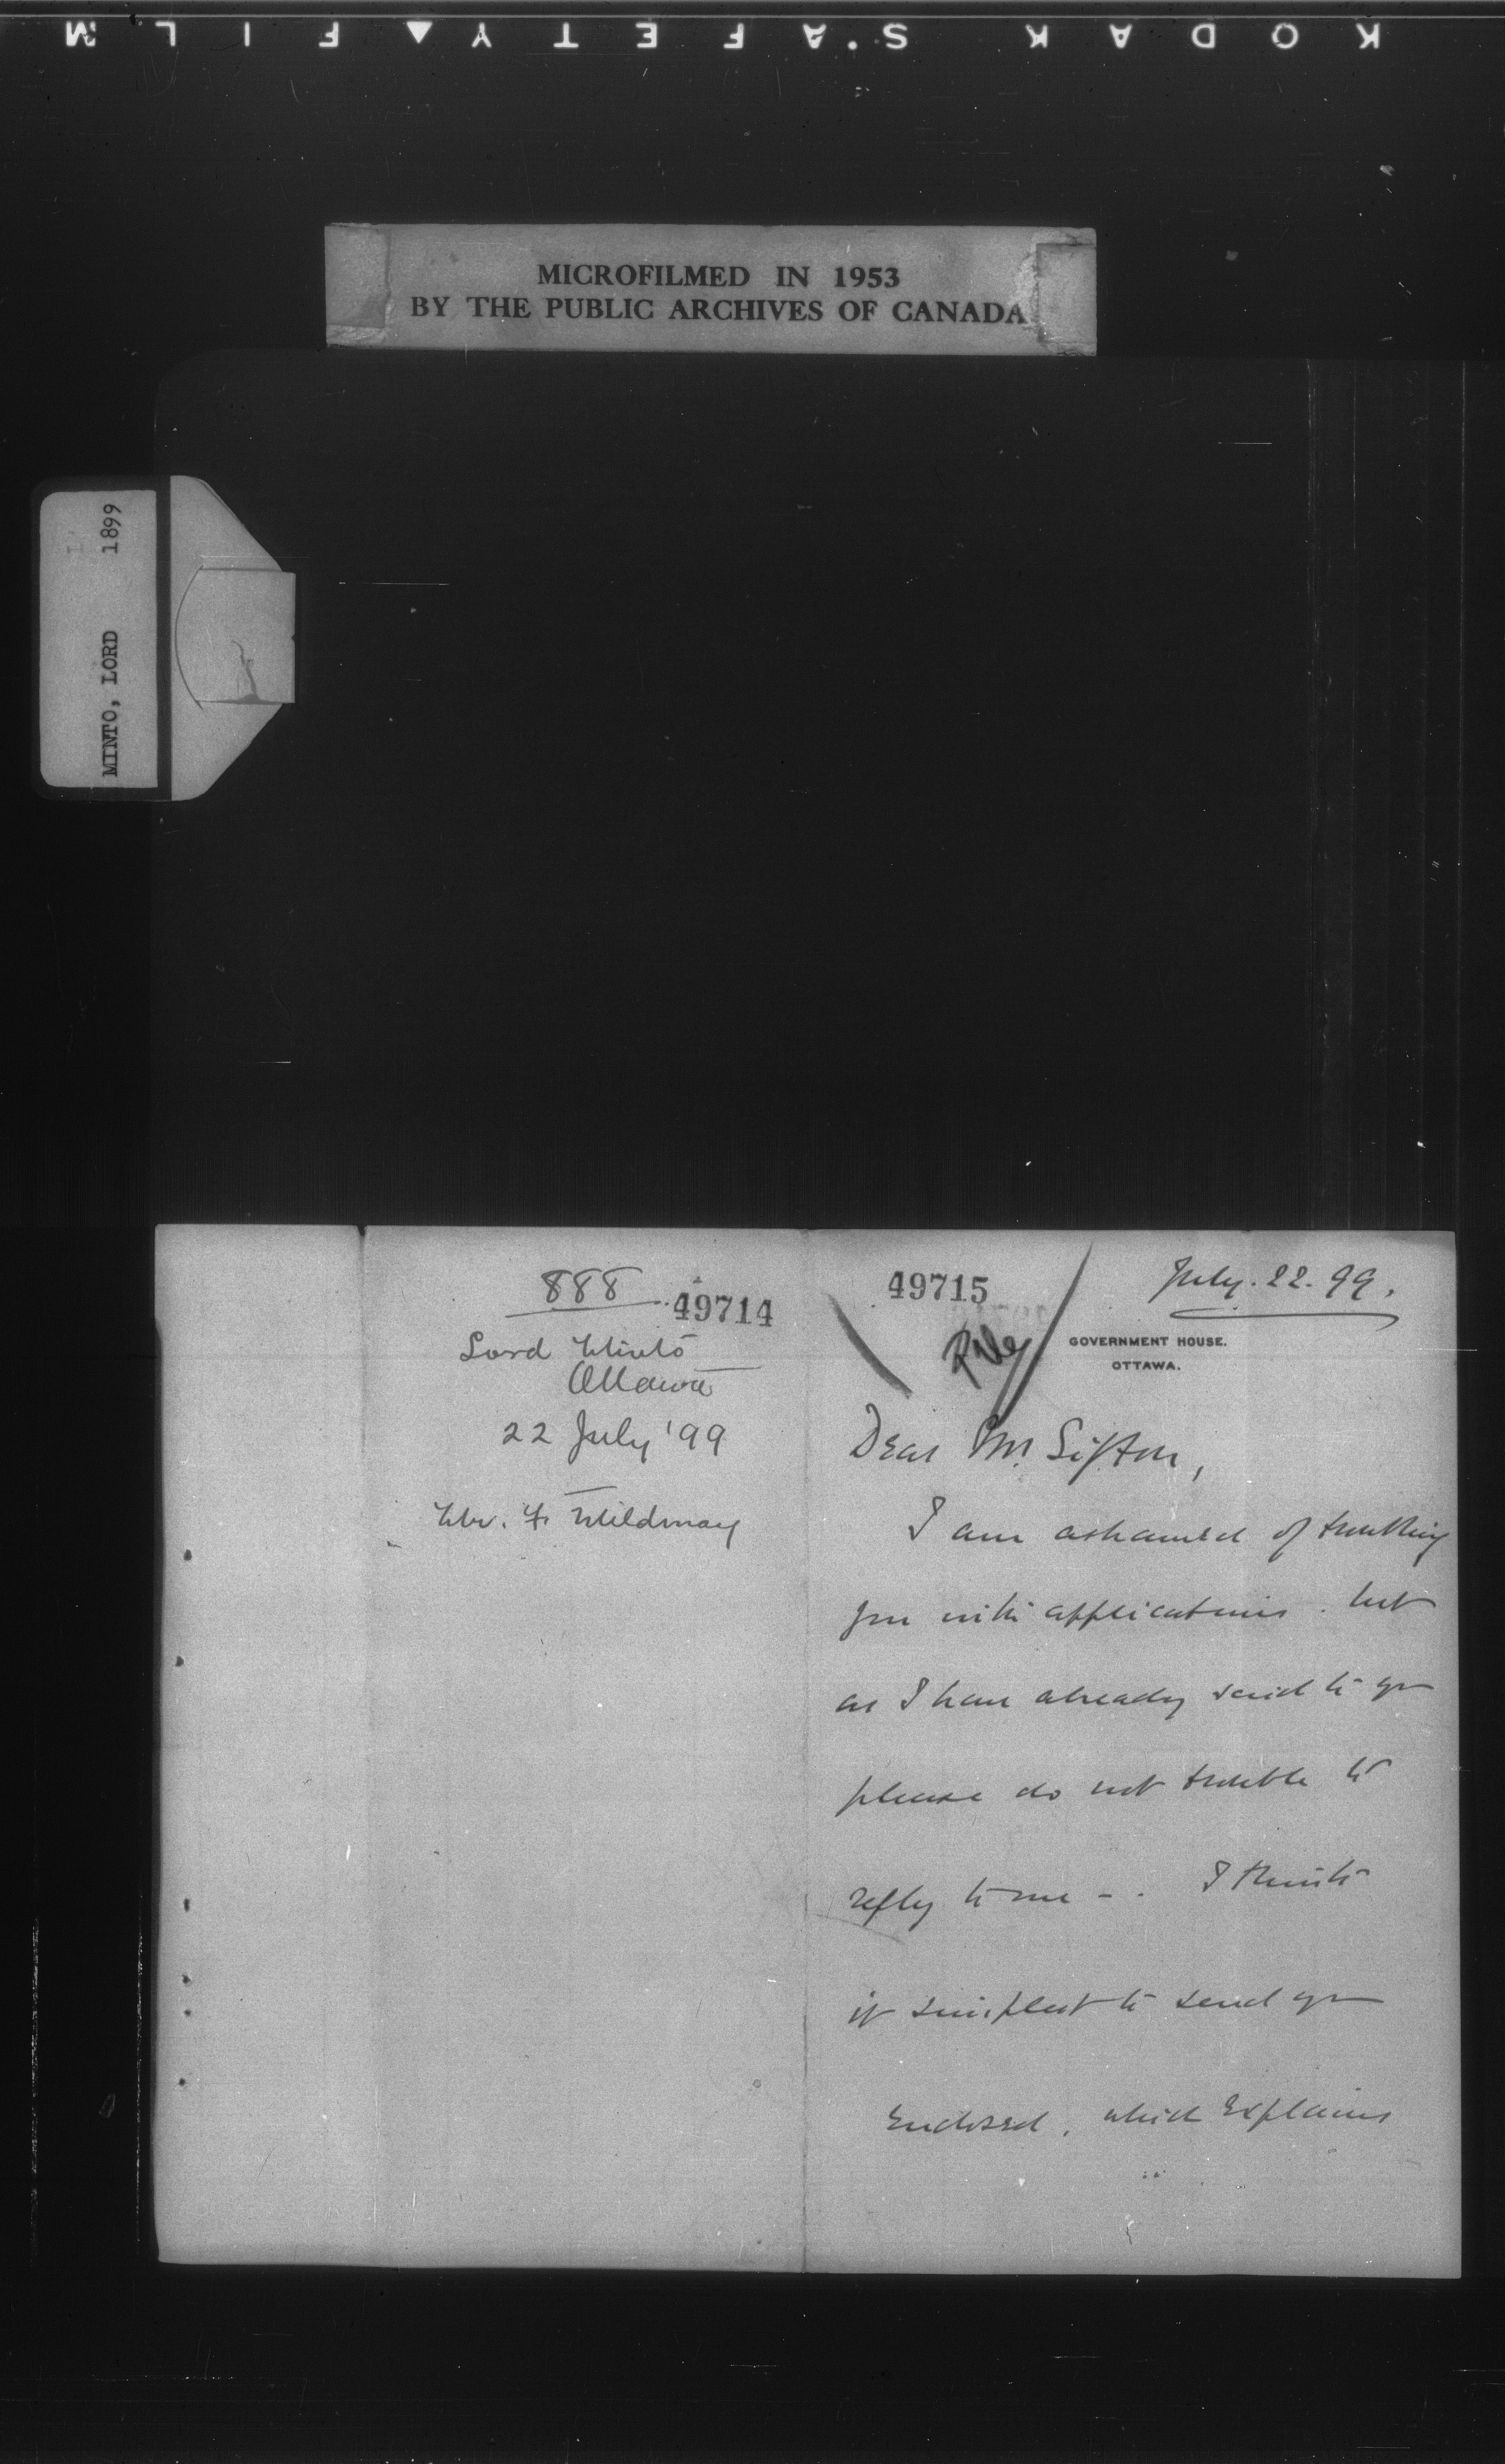 KODAK S.AFETY▲FILM
MICROFILMED IN 1953
BY THE PUBLIC ARCHIVES OF CANADA
MINTO, LORD 1899
888
49714
Lord Minto
Ottawa
22 July '99
Mr. F. Mildmay
49715
July. 22. 99.
File
GOVERNMENT HOUSE.
OTTAWA.
Dear Mr. Sifton,
I am ashamed of troubling
you with applications. but
as I have already said to you
please do not trouble to
reply to me - . I think
it simplest to send you
enclosed, which explains